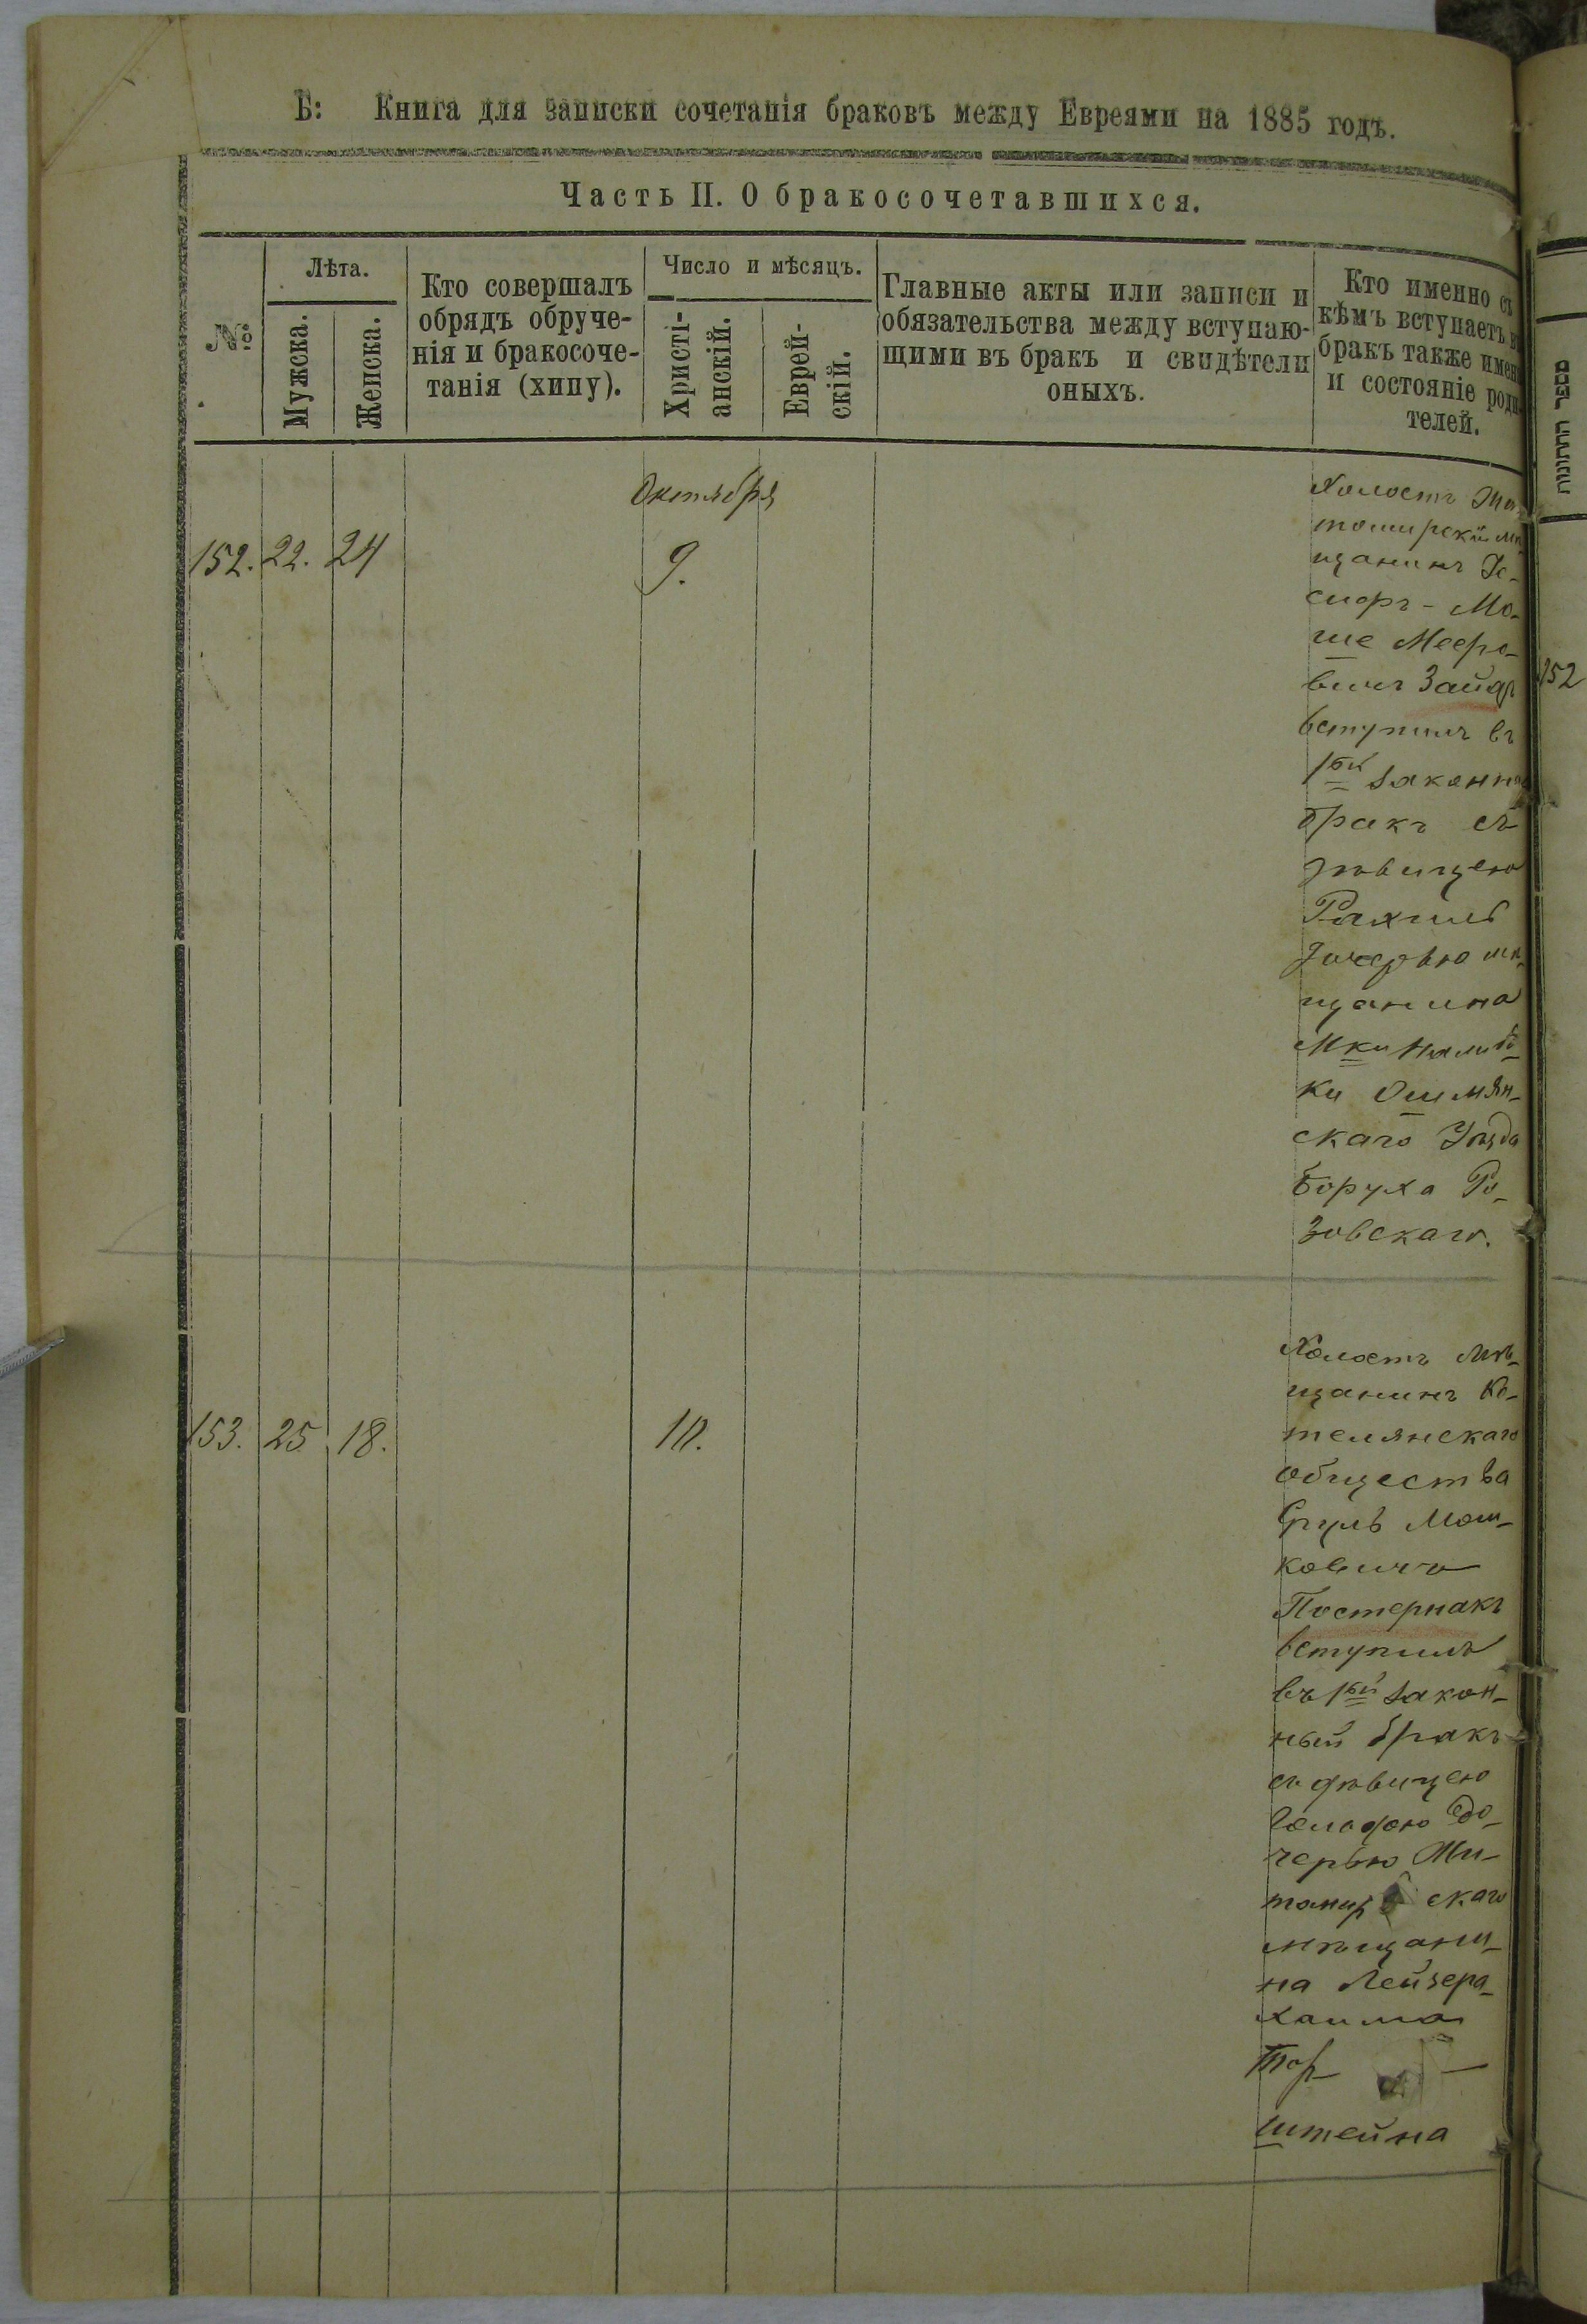 Б: Книга для записки сочетанія браковъ между Евреями на 1885 годъ.
Часть II. О бракосочетавшихся.
№
Лѣта.
Мужска.
Женска.
Кто совершалъ
обрядъ обруче-
нія и бракосоче-
танія (хипу).
Число и мѣсяцъ.
Христі-
анскій.
Еврей-
скій.
Главные акты или записи и
обязательства между вступаю-
щими въ бракъ и свидѣтели
оныхъ.
Кто именно съ
кѣмъ вступаетъ в
бракъ также имен
и состояніе роди
телей.
Октября
152. 22. 24 9.
Холостъ Жи
томирскій мѣ
щанинъ Іо-
сифъ-Мо-
ше Мееро-
вичъ Зайдъ
вступилъ въ
1ый законн
бракъ съ
дѣвицею
Рахиль
дочерью мѣ-
щанина
Мки Налибо-
ки Ошмян-
скаго Уѣзда
Боруха Ро-
зовскаго.
153. 25 18. 10.
Холостъ мѣ-
щанинъ Ко-
телянскаго
общества
Сруль Мош-
ковичъ
Постернакъ
вступилъ
въ 1ый закон-
ный бракъ
съ дѣвицею
до-
черью Жи-
томир скаго
мѣщани-
на Лейзера-
Хаима
штейна
ספר החתונות
152